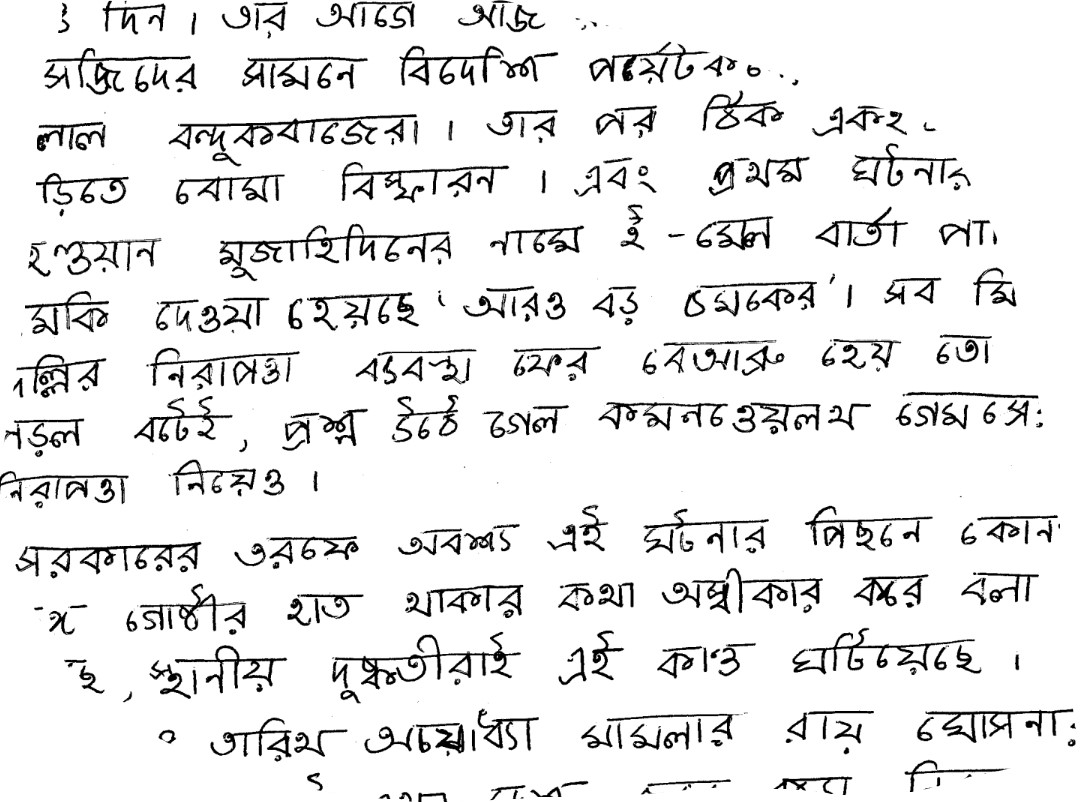 দিন । তার আগে আজ
মসজিদের সামনে বিদেশি পর্যেটক
লাল বন্দুকবাজেরা । তার পর ঠিক
ড়িতে বোমা বিস্ফারন । এবং প্রথম ঘটনার
মুজাহিদিনের নামে ই-মেল বার্তা পা
মকি দেওয়া হয়েছে 'আরও বড় চমকের' । সব মি
ল্লির নিরাপত্তা ব্যবস্থা ফের বেআব্রু হয়ে তো
পড়ল বটেই, প্রশ্ন উঠে গেল কমনওেয়লথ গেমসে
নিরাপত্তা নিয়েও ।
সরকারের তরফে অবশ্য এই ঘটনার পিছনে কোন
গোষ্ঠীর হাত থাকার কথা অস্বীকার করে বলা
ছে, স্থানীয় দুষ্কৃতীরাই এই কাণ্ড ঘটিয়েছে ।
তারিখ অযোধ্যা মামলার রায় ঘোসনা